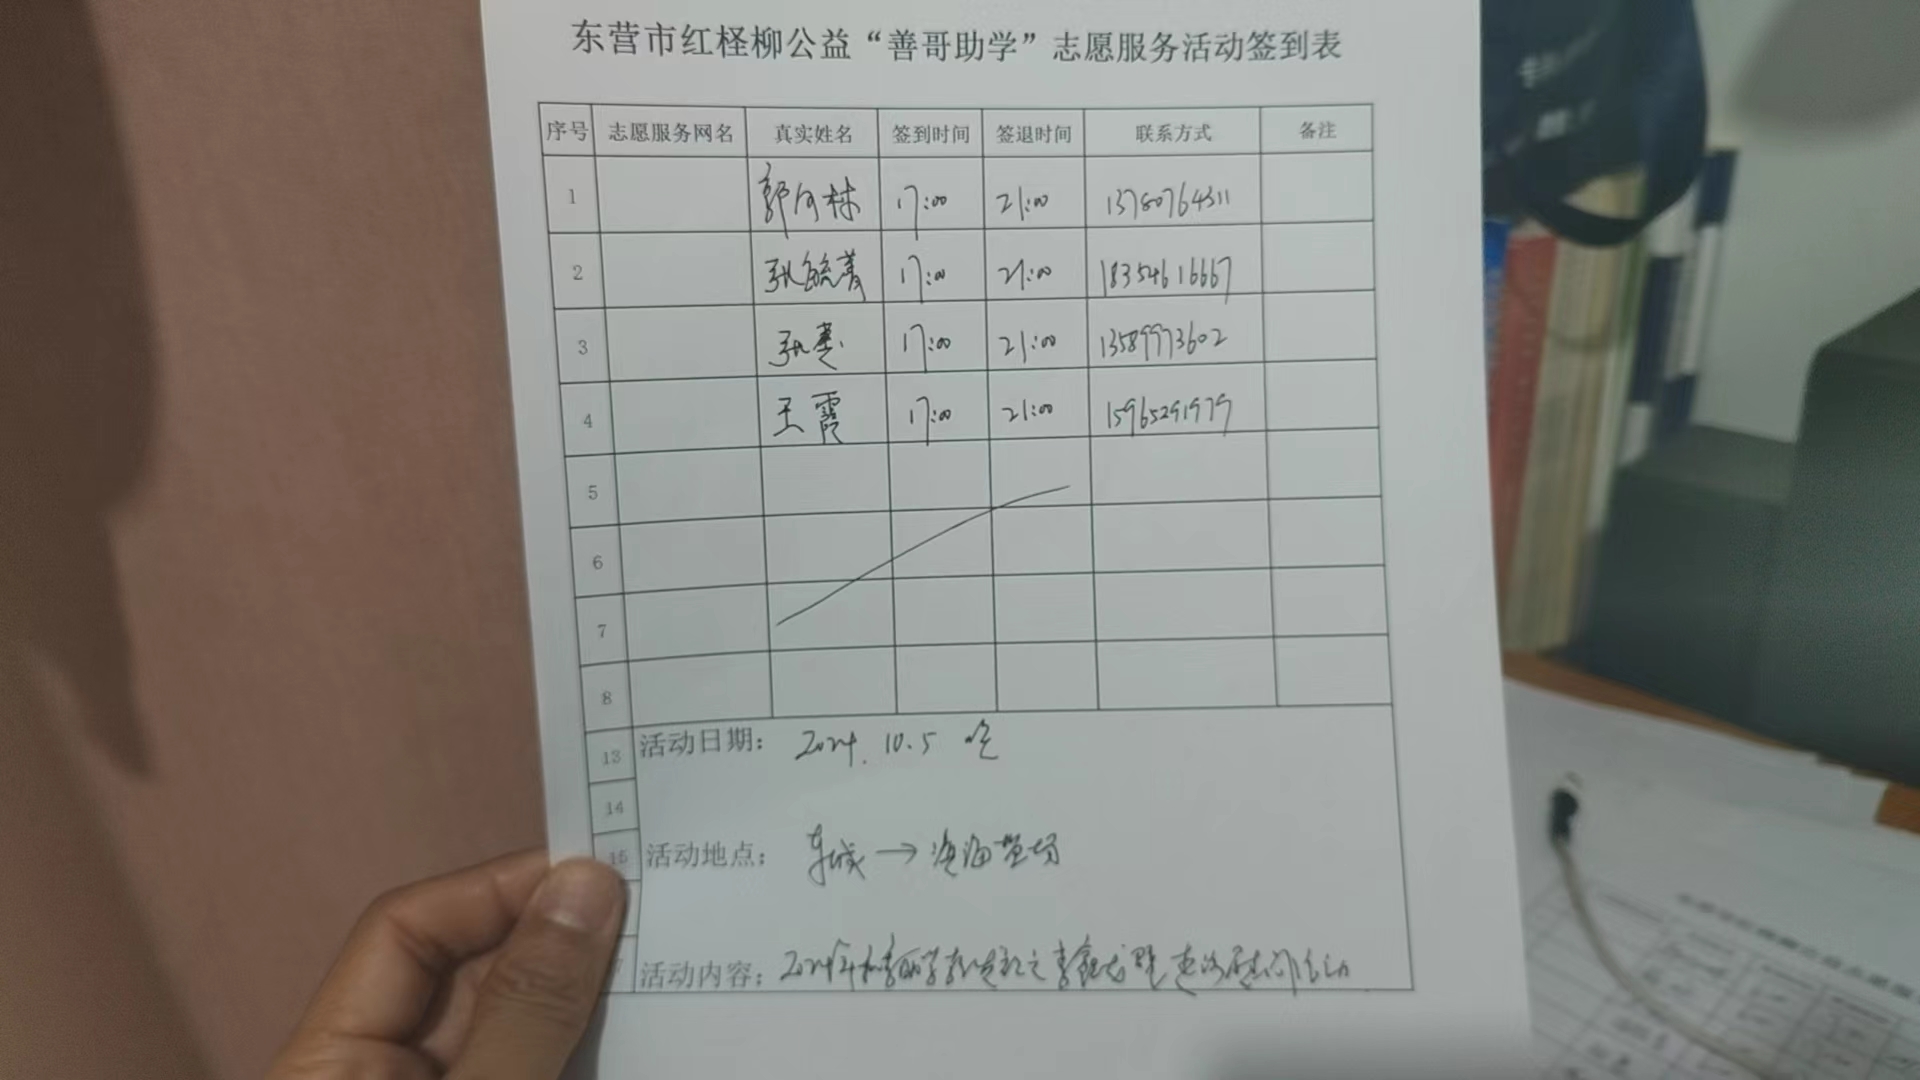 东营市红柽柳公益“善哥助学”志愿服务活动签到表
序号 志愿服务网名 真实姓名 签到时间 签退时间 联系方式 备注
1 郭 林 17:00 21:00 13780764311
2 张毓菁 17:00 21:00 18354616667
3 张 17:00 21:00 13589973602
4 王霞 17:00 21:00 15965291979
5
6
7
8
13 活动日期: 2024.10.5 晚
14
15 活动地点: 东城→ 海 场
7 活动内容: 2024年 助学 活动